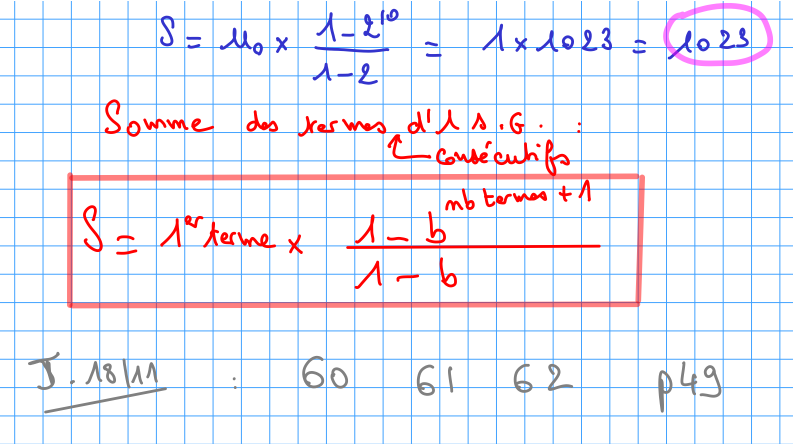 S = u₀ × (1 - 2¹⁰)/(1 - 2) = 1 × 1023 = 1023
Somme des termes d'1 s.G. :
consécutifs
S = 1er terme × (1 - b^(nb termes + 1))/(1 - b)
J. 18/11 : 60 61 62 p49